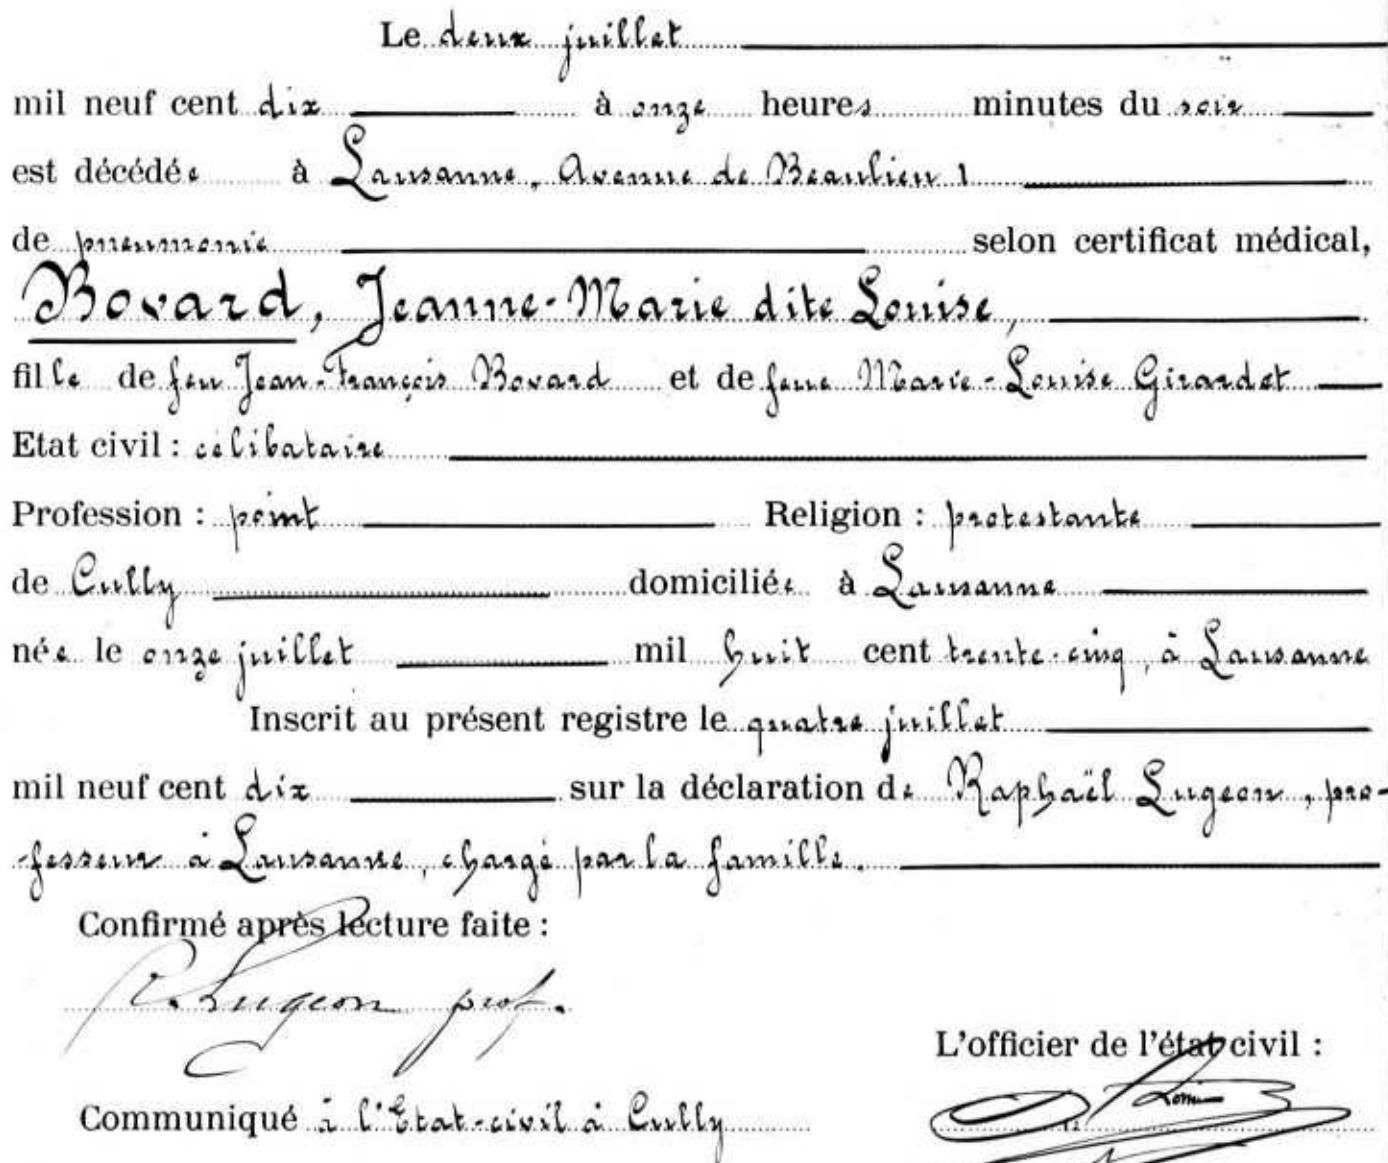 Le deux juillet
mil neuf cent dix à onze heures minutes du soir
est décédée à Lausanne, Avenue de Beaulieu 1
de pneumonie selon certificat médical,
Bovard, Jeanne-Marie dite Louise,
fille de feu Jean-François Bovard et de feue Marie-Louise Girardet
Etat civil : célibataire
Profession : point Religion : protestante
de Cully domiciliée à Lausanne
née le onze juillet mil huit cent trente-cinq, à Lausanne
Inscrit au présent registre le quatre juillet
mil neuf cent dix sur la déclaration de Raphaël Lugeon, pro-
fesseur à Lausanne, chargé par la famille.
Confirmé après lecture faite :
R. Lugeon prof.
L'officier de l'état civil :
Communiqué à l'Etat-civil à Cully